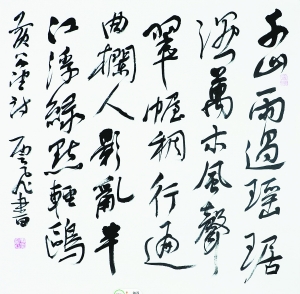 千山雨過瑶琚
濕萬木風聲
翠幄稠行遍
曲欄人影亂半
江浮綠點輕鷗
黄公望詩 雲飞書